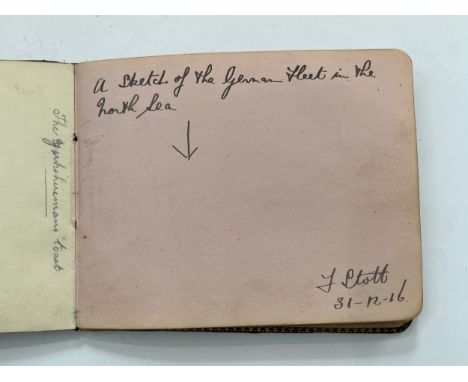 The Yorkshiremans toast
A Sketch of the German Fleet in the
North Sea
F Stott
31-12-16